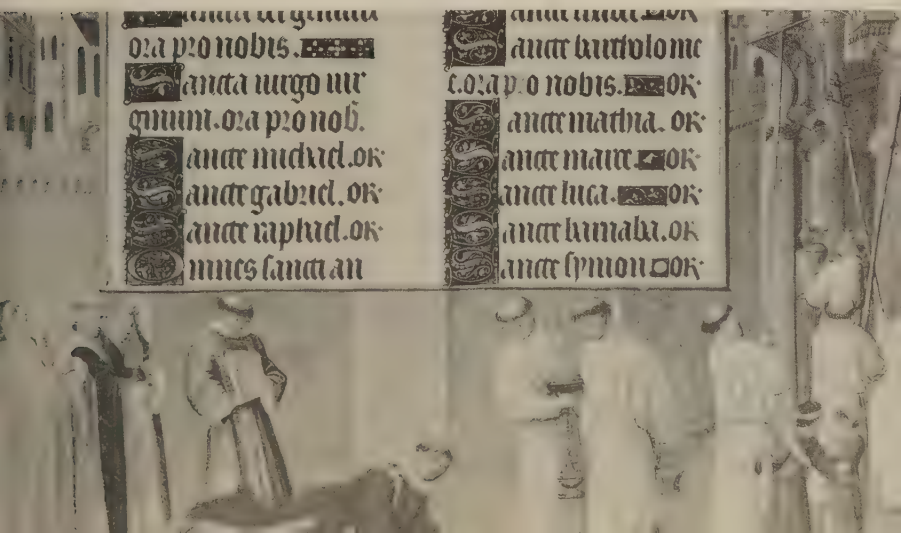 ora pro nobis.
Sancta uirgo uir
ginum. ora pro nob.
Sancte michael. or
Sancte gabriel. or
Sancte raphael. or
Omnes sancti an
Sancte bartholome
e. ora pro nobis. or
Sancte mathia. or
Sancte marce or
Sancte luca. or
Sancte barnaba. or
Sancte symon or